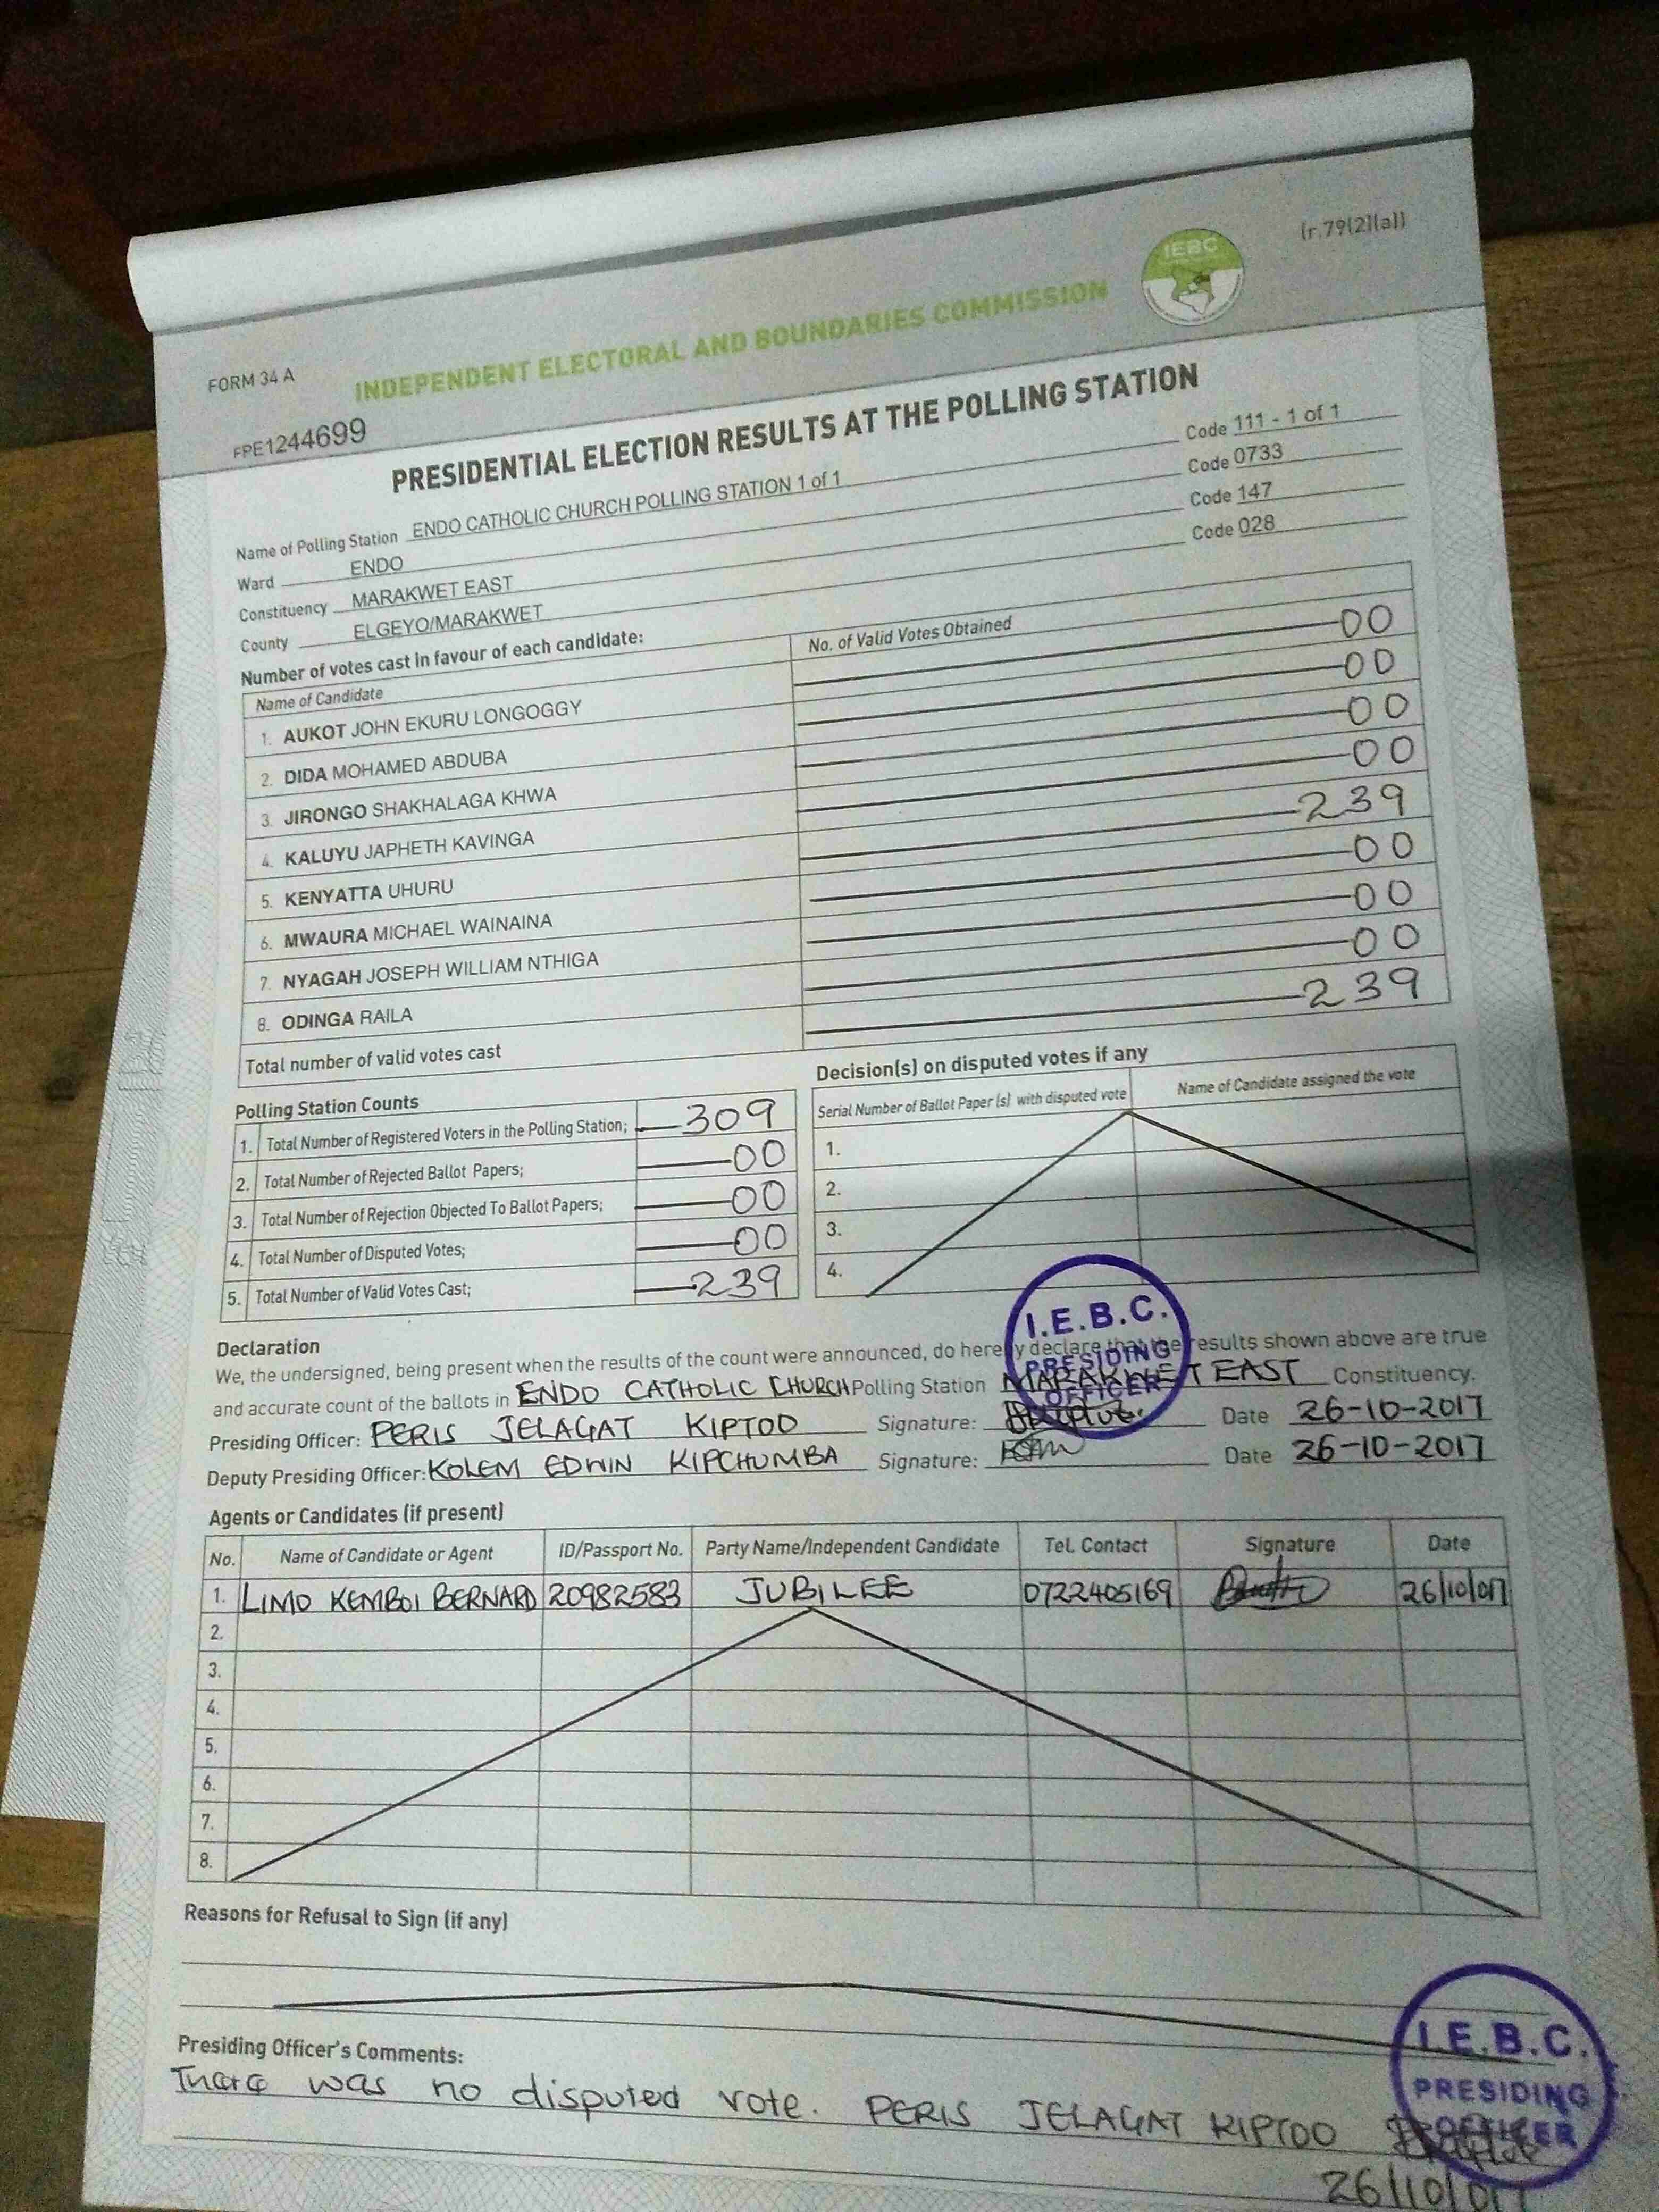 (r.79(2)(a))
IEBC
FORM 34 A
INDEPENDENT ELECTORAL AND BOUNDARIES COMMISSION
FPE1244699
PRESIDENTIAL ELECTION RESULTS AT THE POLLING STATION
Name of Polling Station ENDO CATHOLIC CHURCH POLLING STATION 1 of 1 Code 111 - 1 of 1
Ward ENDO Code 0733
Constituency MARAKWET EAST Code 147
County ELGEYO/MARAKWET Code 028
Number of votes cast in favour of each candidate:
Name of Candidate No. of Valid Votes Obtained
1. AUKOT JOHN EKURU LONGOGGY 00
2. DIDA MOHAMED ABDUBA 00
3. JIRONGO SHAKHALAGA KHWA 00
4. KALUYU JAPHETH KAVINGA 00
5. KENYATTA UHURU 239
6. MWAURA MICHAEL WAINAINA 00
7. NYAGAH JOSEPH WILLIAM NTHIGA 00
8. ODINGA RAILA 00
Total number of valid votes cast 239
Polling Station Counts
1. Total Number of Registered Voters in the Polling Station; 309
2. Total Number of Rejected Ballot Papers; 00
3. Total Number of Rejection Objected To Ballot Papers; 00
4. Total Number of Disputed Votes; 00
5. Total Number of Valid Votes Cast; 239
Decision(s) on disputed votes if any
Serial Number of Ballot Paper (s) with disputed vote Name of Candidate assigned the vote
1.
2.
3.
4.
I.E.B.C.
PRESIDING
OFFICER
Declaration
We, the undersigned, being present when the results of the count were announced, do hereby declare that the results shown above are true
and accurate count of the ballots in ENDO CATHOLIC CHURCH Polling Station MARAKWET EAST Constituency.
Presiding Officer: PERIS JELAGAT KIPTOO Signature: Date 26-10-2017
Deputy Presiding Officer: KOLEM EDWIN KIPCHUMBA Signature: Date 26-10-2017
Agents or Candidates (if present)
No. Name of Candidate or Agent ID/Passport No. Party Name/Independent Candidate Tel. Contact Signature Date
1. LIMO KEMBOI BERNARD 20982583 JUBILEE 0722405169 26/10/017
2.
3.
4.
5.
6.
7.
8.
Reasons for Refusal to Sign (if any)
Presiding Officer's Comments:
There was no disputed vote. PERIS JELAGAT KIPTOO
26/10/017
I.E.B.C.
PRESIDING
OFFICER